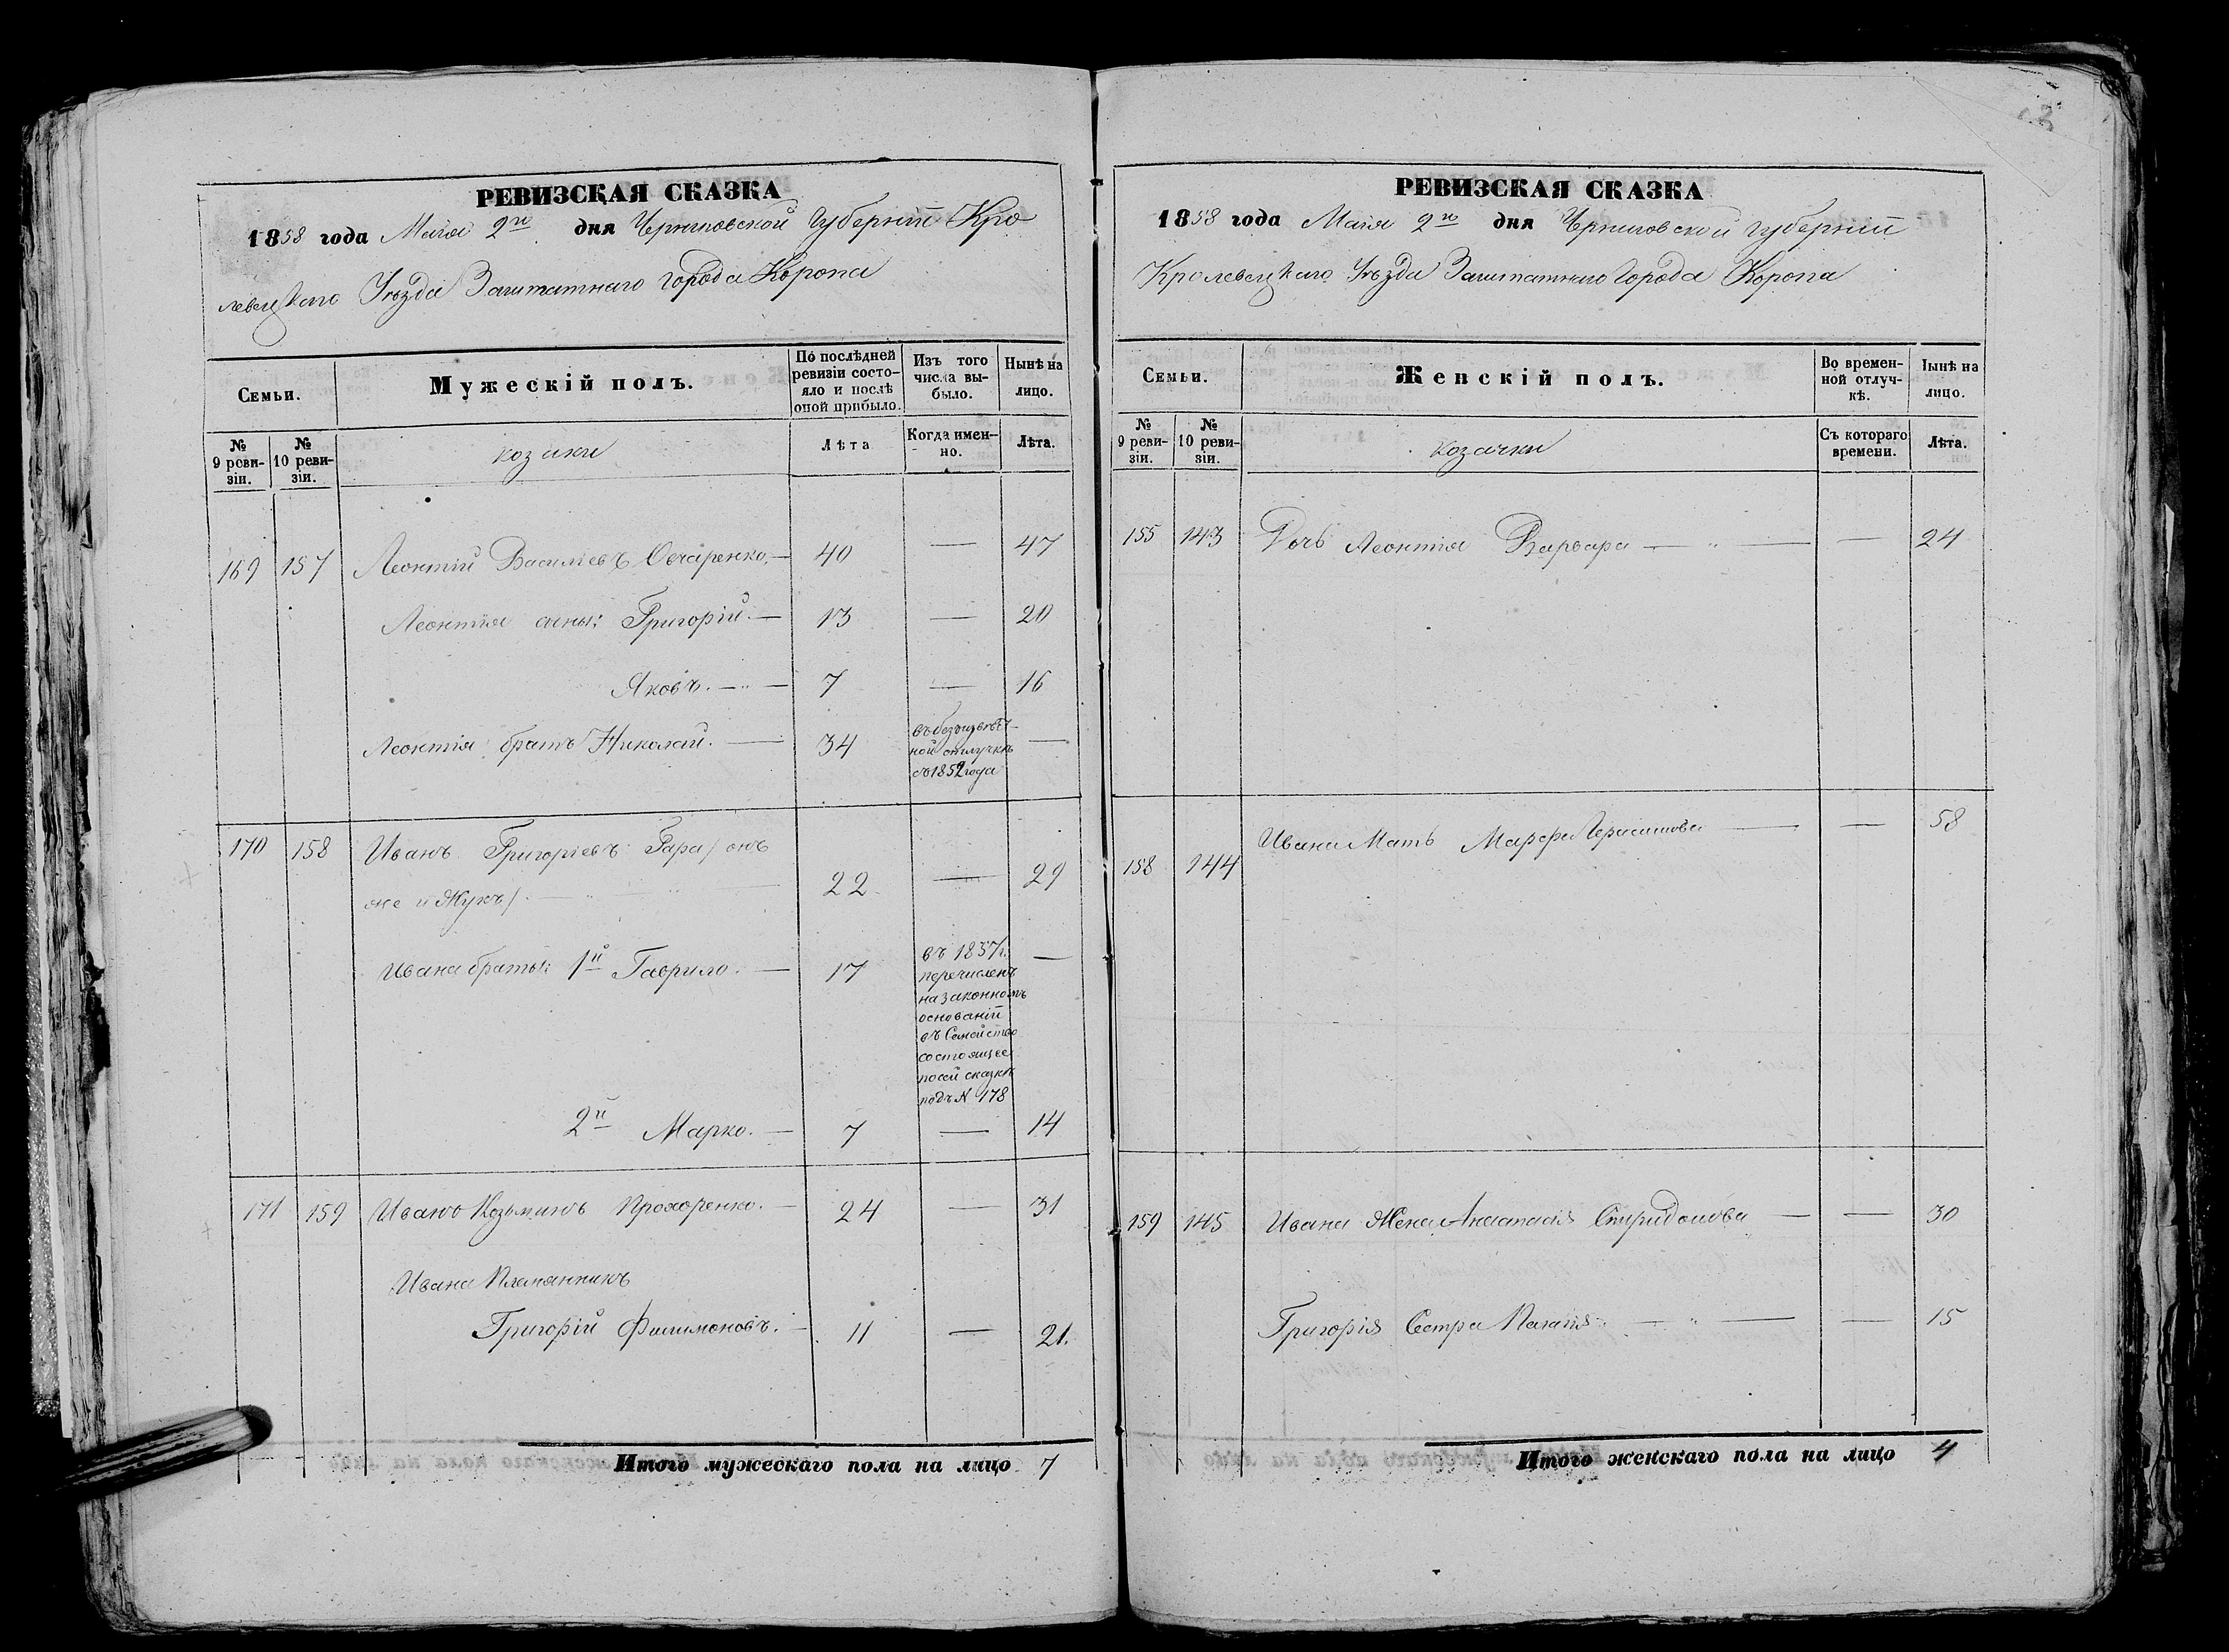 РЕВИЗСКАЯ СКАЗКА
1858 года Маія 2го дня Черниговской Губерніи Кро
левецкаго Уѣзда Заштатнаго Города Коропа
Семьи.
Мужескій полъ.
По послѣдней ревизіи состояло и послѣ оной прибыло.
Изъ того числа выбыло.
Нынѣ на лицо.
№ 9 ревизіи.
№ 10 ревизіи.
козаки
Лѣта
Когда именно.
Лѣта.
169 157 Леонтій Василіевъ Овчаренко. — 40 — 47
Леонтія сыны: Григорій. — 13 — 20
Яковъ. — 7 — 16
Леонтія братъ Николай. — 34 —
въ безъизвѣст-
ной отлучкѣ
съ 1852 года
170 158 Иванъ Григоріевъ Гира / онъ
же и Жукъ /. — 22 — 29
Ивана братья: 1й Гаврило. — 17 —
въ 1857 г.
перечисленъ
на законномъ
основаніи
въ Семейство
состоящее
по сей сказкѣ
подъ № 178
2й Марко. — 7 — 14
171 159 Иванъ Козьминъ Прохоренко. — 24 — 31
Ивана Племянникъ
Григорій Филимоновъ. — 11 — 21.
Итого мужескаго пола на лицо 7
РЕВИЗСКАЯ СКАЗКА
1858 года Маія 2го дня Черниговской Губерніи
Кролевецкаго Уѣзда Заштатнаго Города Коропа
Семьи.
Женскій полъ.
Во временной отлучкѣ.
Нынѣ на лицо.
№ 9 ревизіи.
№ 10 ревизіи.
козачки
Съ котораго времени.
Лѣта.
155 143 Дочь Леонтія Варвара — — 24
Ивана Мать Марфа Герасимова — — 58
158 144
159 145 Ивана Жена Анастасія Спиридонова — — 30
Григорія Сестра Пелагія — — 15
Итого женскаго пола на лицо 4